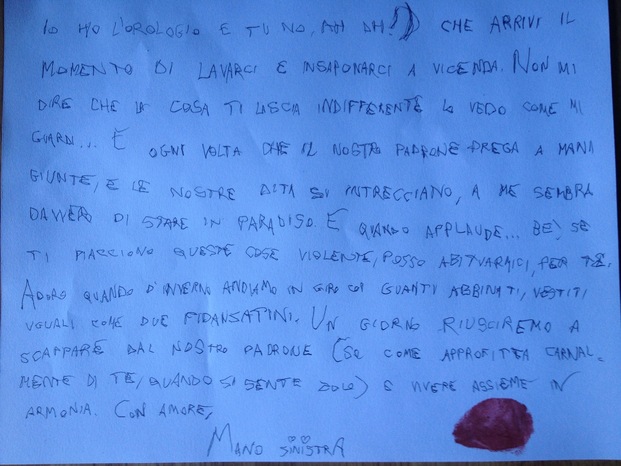 IO HO L'OROLOGIO E TU NO, AH AH!) CHE ARRIVI IL
MOMENTO DI LAVARCI E INSAPONARCI A VICENDA. NON MI
DIRE CHE LA COSA TI LASCIA INDIFFERENTE LO VEDO COME MI
GUARDI... E OGNI VOLTA CHE IL NOSTRO PADRONE PREGA A MANI
GIUNTE, E LE NOSTRE DITA SI INTRECCIANO, A ME SEMBRA
DAVVERO DI STARE IN PARADISO. E QUANDO APPLAUDE... BEH SE
TI PIACCIONO QUESTE COSE VIOLENTE, POSSO ABITUARMICI, PER TE.
ADORO QUANDO D'INVERNO ANDIAMO IN GIRO COI GUANTI ABBINATI, VESTITI
UGUALI COME DUE FIDANSATINI. UN GIORNO RIUSCIREMO A
SCAPPARE DAL NOSTRO PADRONE (SO COME APPROFITTA CARNAL-
MENTE DI TE, QUANDO SI SENTE SOLO) E VIVERE ASSIEME IN
ARMONIA. CON AMORE,
MANO SINISTRA